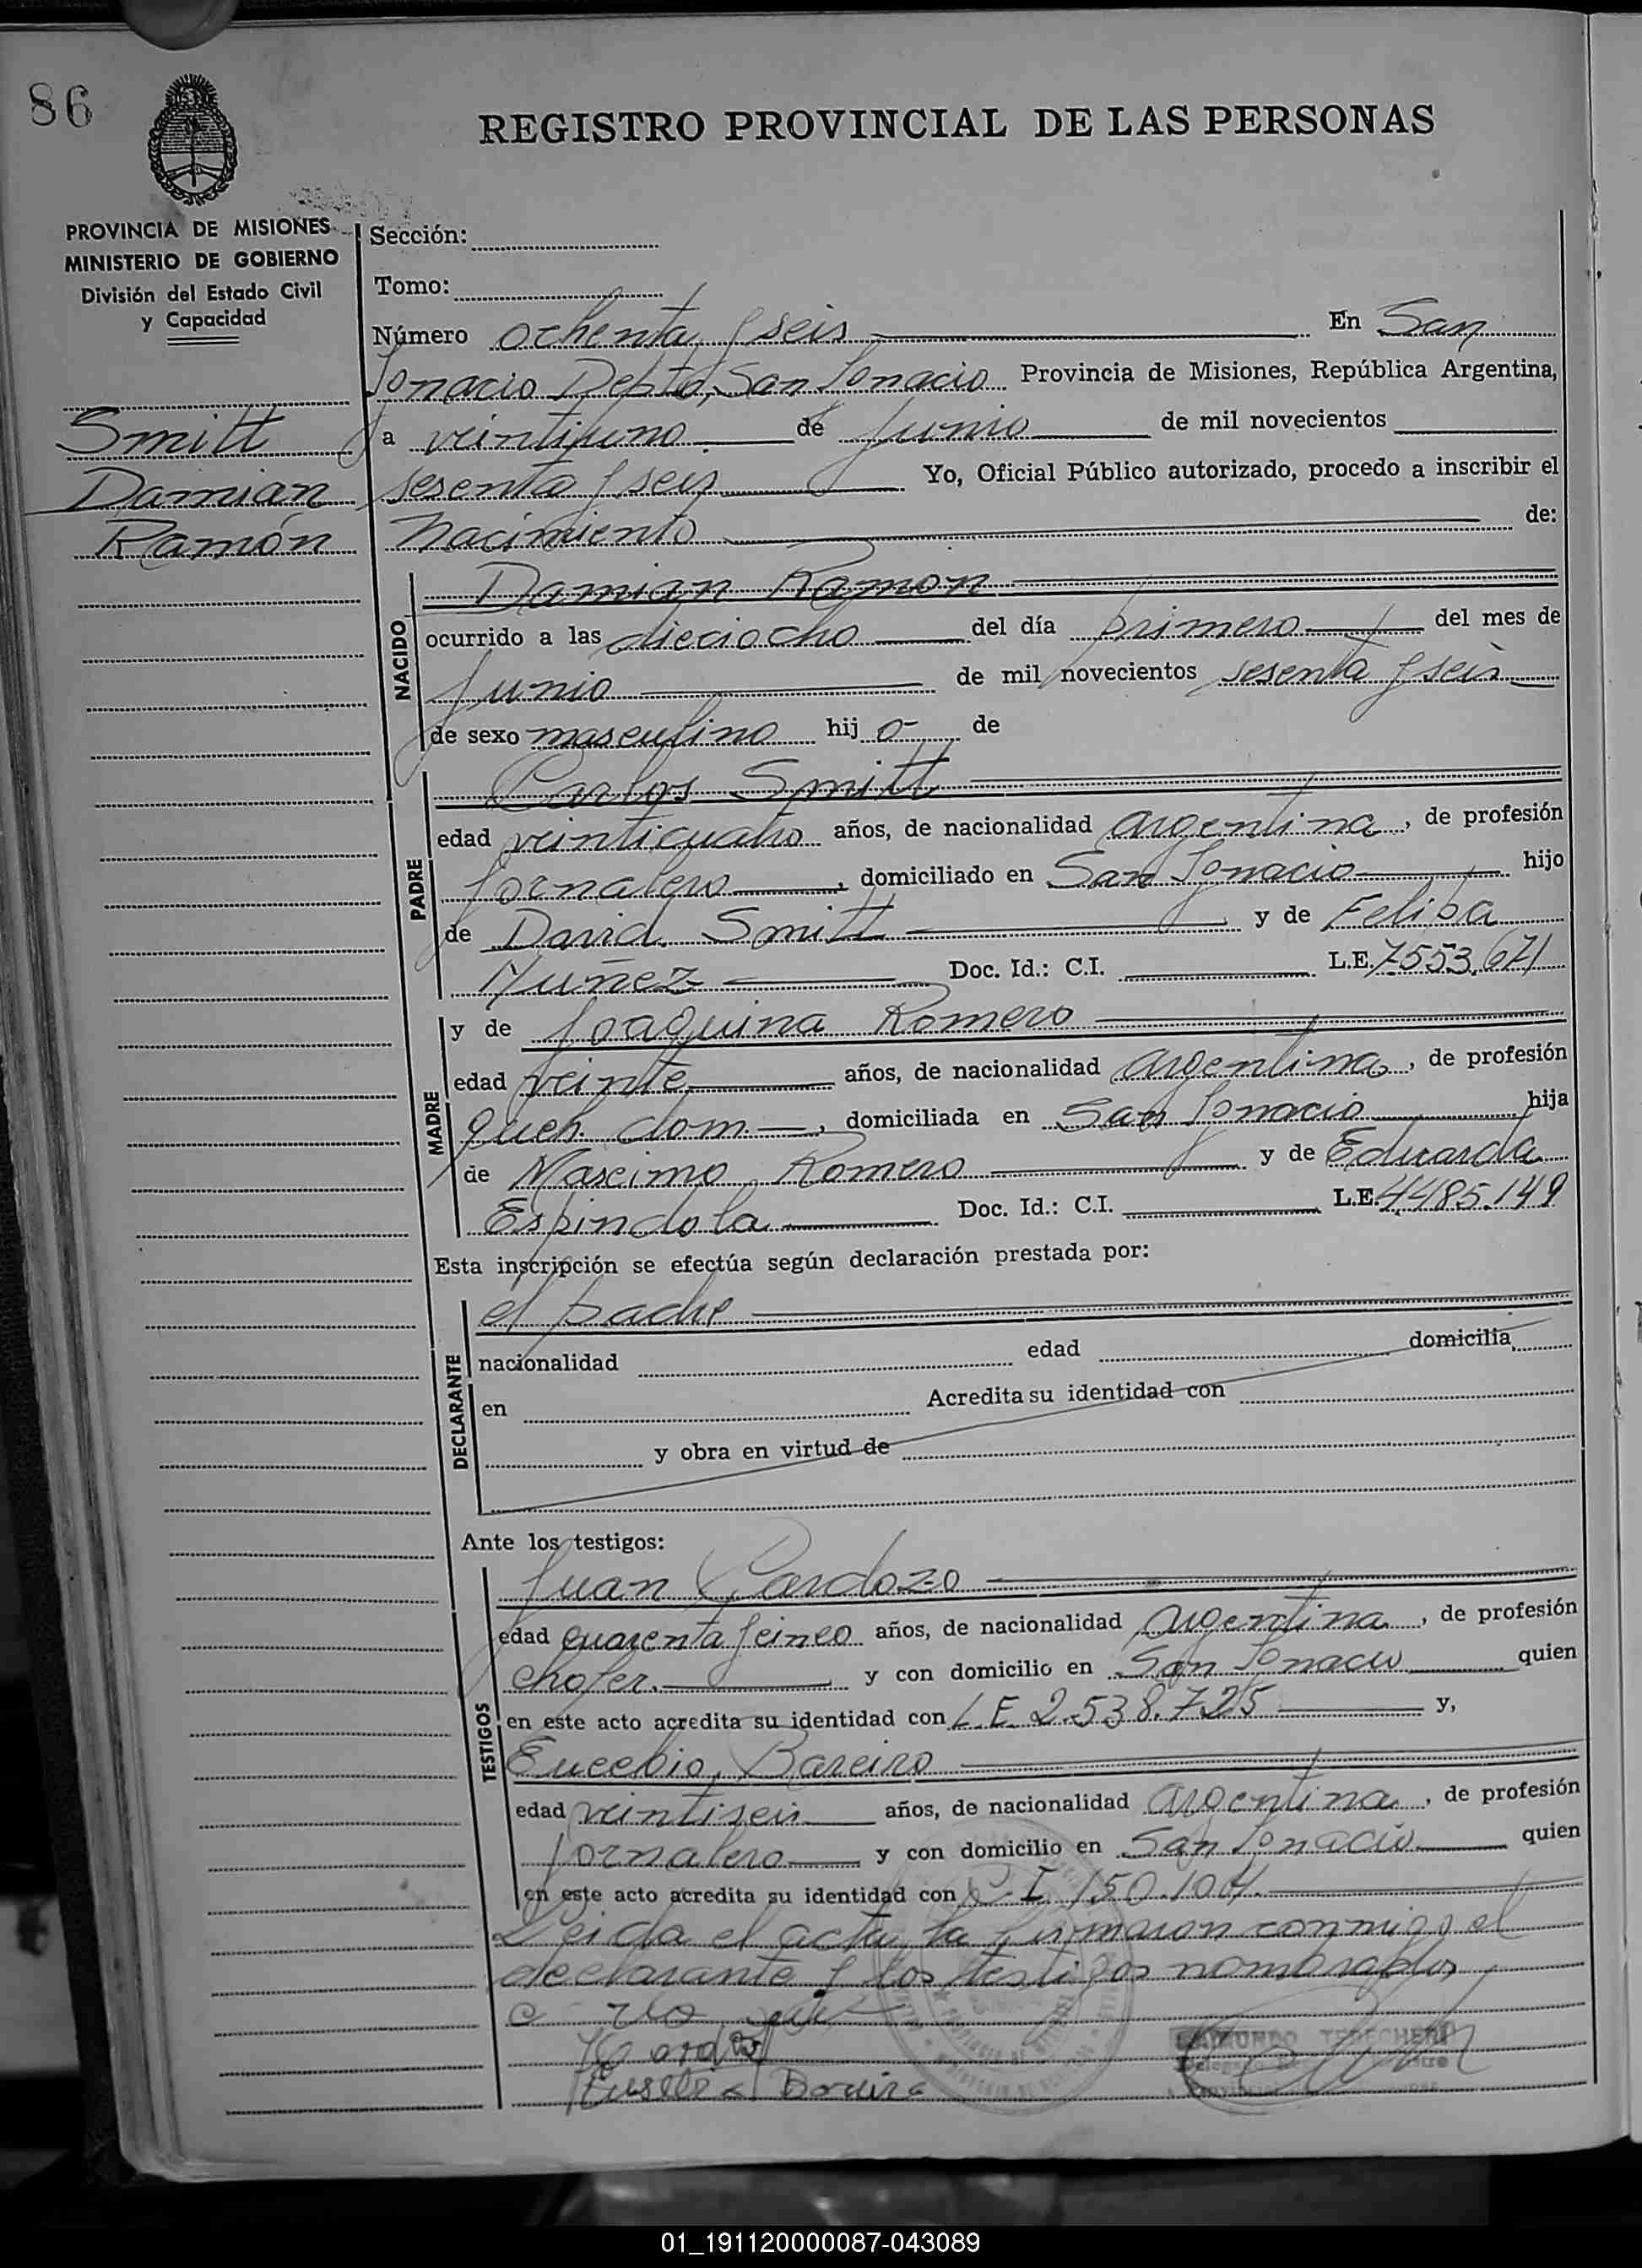 86
REGISTRO PROVINCIAL DE LAS PERSONAS
PROVINCIA DE MISIONES
MINISTERIO DE GOBIERNO
División del Estado Civil
y Capacidad
Smitt
Damian
Ramón
Sección:
Tomo:
Número ochenta y seis En San
Ignacio Depto, San Ignacio Provincia de Misiones, República Argentina,
a veintiuno de Junio de mil novecientos
sesenta y seis Yo, Oficial Público autorizado, procedo a inscribir el
Nacimiento de:
NACIDO
Damian Ramon
ocurrido a las dieciocho del día primero del mes de
Junio de mil novecientos sesenta y seis
de sexo masculino hij o de
PADRE
Carlos Smitt
edad veinticuatro años, de nacionalidad argentina, de profesión
Jornalero, domiciliado en San Ignacio hijo
de David Smitt y de Felipa
Nuñez Doc. Id.: C.I. L.E. 7553.671
MADRE
y de Joaquina Romero
edad veinte años, de nacionalidad argentina, de profesión
queh. dom. , domiciliada en San Ignacio hija
de Mascimo Romero y de Eduarda
Espindola Doc. Id.: C.I. L.E. 4485.149
Esta inscripción se efectúa según declaración prestada por:
DECLARANTE
el padre
nacionalidad edad domicilia
en Acredita su identidad con
y obra en virtud de
Ante los testigos:
TESTIGOS
Juan Cardozo
edad cuarenta y cinco años, de nacionalidad argentina, de profesión
chofer. y con domicilio en San Ignacio quien
en este acto acredita su identidad con L.E. 2.538.725 y,
Eucebio Bareiro
edad veintiseis años, de nacionalidad argentina, de profesión
Jornalero y con domicilio en San Ignacio quien
en este acto acredita su identidad con C.I. 150.104.
Leida el acta, la firmaron conmigo el
declarante y los testigos nombrados
RAIMUNDO
01_191120000087-043089